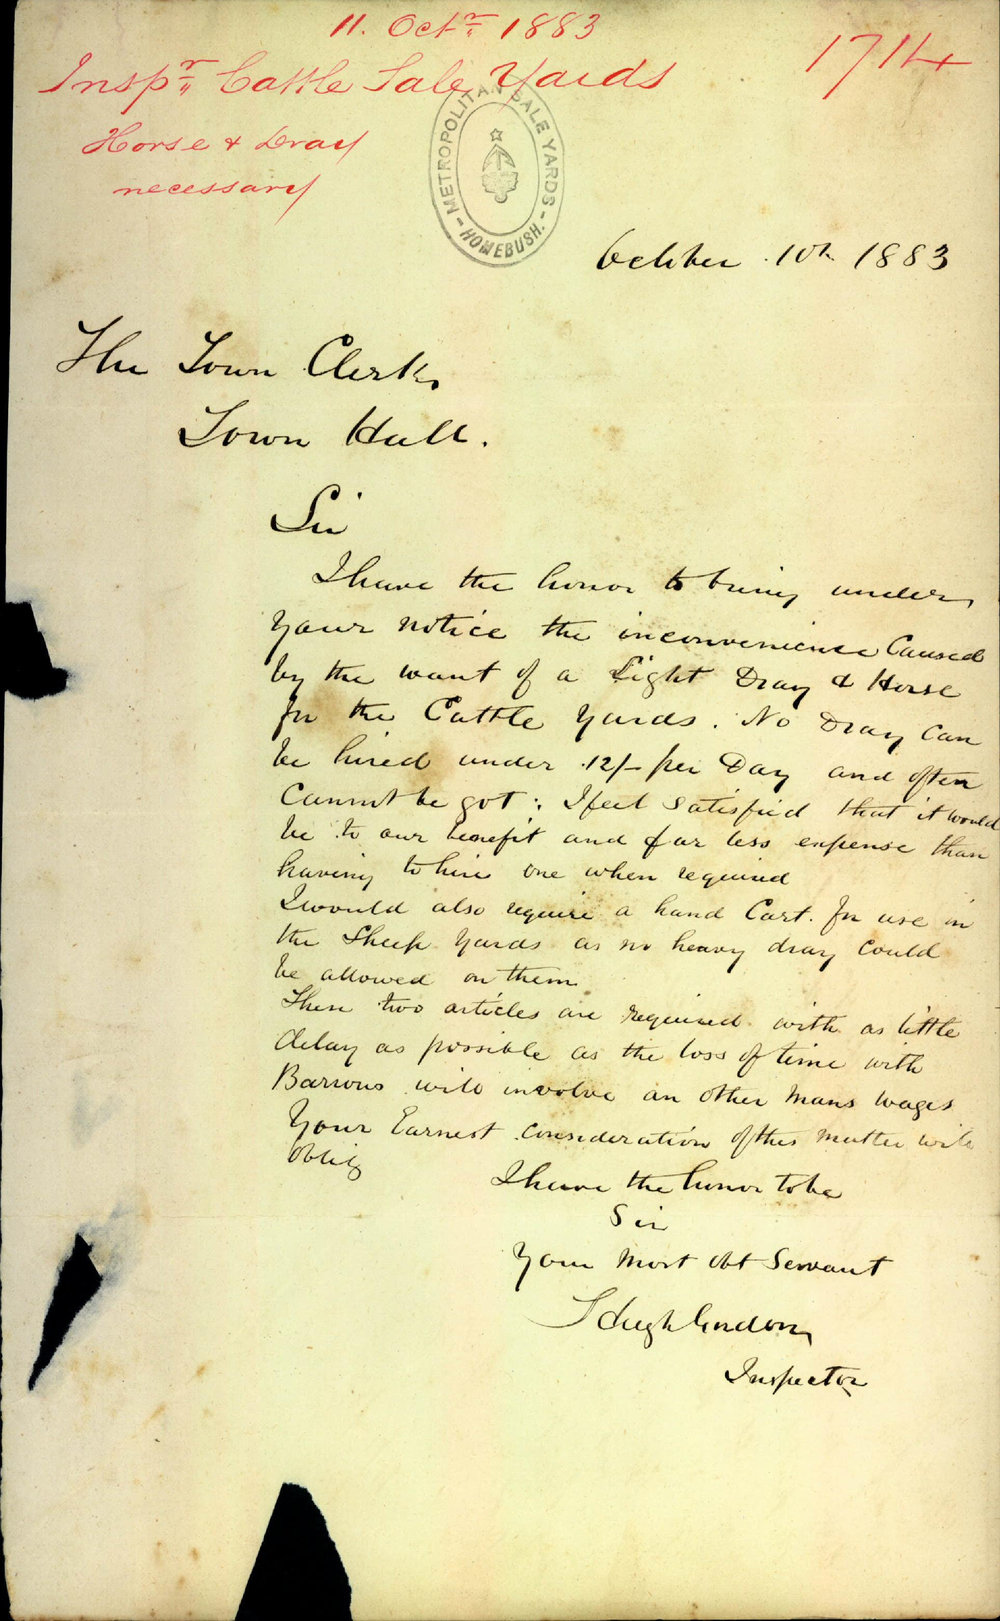 11. Octr. 1883
1714
Inspr. Cattle Sale Yards
Horse & Dray
necessary
METROPOLITAN SALE YARDS
HOMEBUSH.
October 10th 1883
The Town Clerk,
Town Hall.
Sir
I have the honor to bring under
your notice the inconvenience Caused
by the want of a Light Dray & Horse
for the Cattle Yards. No Dray Can
be hired under 12/- per Day and often
Cannot be got: I feel Satisfied that it would
be to our benefit and far less expense than
having to hire one when required
I would also require a hand Cart for use in
the Sheep Yards as no heavy dray Could
be allowed on them
These two articles are required with as little
delay as possible as the loss of time with
Barrows will involve an other mans wages
Your Earnest consideration of this matter will
oblig
I have the honor to be
Sir
Your Most Obt Servant
Hugh Gordon
Inspector